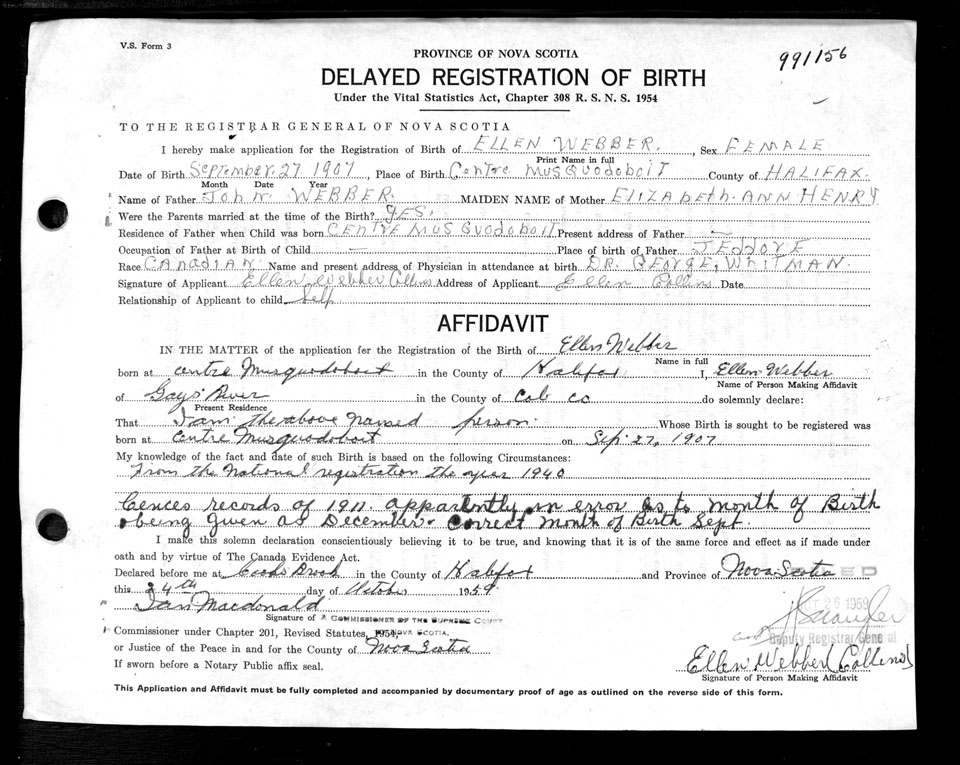 V.S. Form 3
PROVINCE OF NOVA SCOTIA
991156
DELAYED REGISTRATION OF BIRTH
Under the Vital Statistics Act, Chapter 308 R. S. N. S. 1954
TO THE REGISTRAR GENERAL OF NOVA SCOTIA
I hereby make application for the Registration of Birth of ELLEN WEBBER, Sex FEMALE
Print Name in full
Date of Birth September 27 1907, Place of Birth Centre MusQuodoboiT County of HALIFAX
Month Date Year
Name of Father John WEBBER MAIDEN NAME of Mother ELIZABETH ANN HENRY
Were the Parents married at the time of the Birth? YES.
Residence of Father when Child was born CENTRE MUSQUODOBOIT Present address of Father —
Occupation of Father at Birth of Child — Place of birth of Father JEDDORE
Race CANADIAN Name and present address of Physician in attendance at birth DR. GEORGE, WHITMAN.
Signature of Applicant Ellen Webber Collins Address of Applicant Ellen Collins Date
Relationship of Applicant to child Self
AFFIDAVIT
IN THE MATTER of the application for the Registration of the Birth of Ellen Webber
Name in full
born at centre Musquodoboit in the County of Halifax I, Ellen Webber
Name of Person Making Affidavit
of Gays River in the County of Col. co do solemnly declare:
Present Residence
That I am the above named person Whose Birth is sought to be registered was
born at Centre Musquodoboit on Sep. 27, 1907
My knowledge of the fact and date of such Birth is based on the following Circumstances:
From the National registration the year 1940
Cences records of 1911 apparently in error as to month of Birth
being given as December. Correct month of Birth Sept.
I make this solemn declaration conscientiously believing it to be true, and knowing that it is of the same force and effect as if made under
oath and by virtue of The Canada Evidence Act.
Declared before me at Cooks Brook in the County of Halifax and Province of Nova Scotia
this 24th day of October 1959
Ian Macdonald
Signature of A COMMISSIONER OF THE SUPREME COURT
Commissioner under Chapter 201, Revised Statutes, 1954, NOVA SCOTIA,
1959
Deputy Registrar General
or Justice of the Peace in and for the County of Nova Scotia
If sworn before a Notary Public affix seal.
Ellen Webber (Collins)
Signature of Person Making Affidavit
This Application and Affidavit must be fully completed and accompanied by documentary proof of age as outlined on the reverse side of this form.